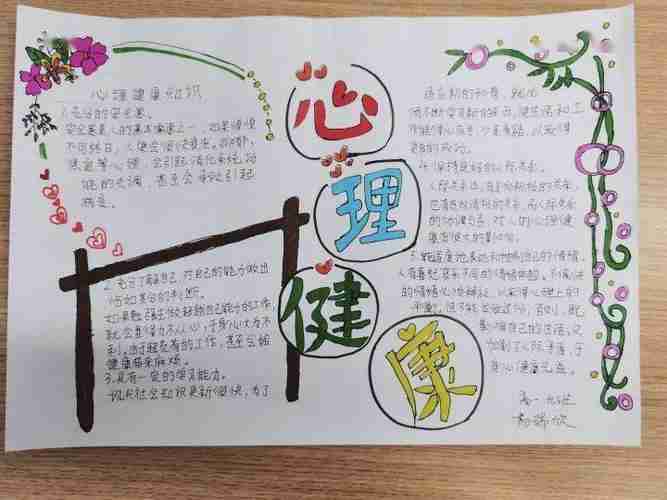 心理健康知识
1.充分的安全感。
安全感是人的基本需要之一,如果惶惶
不可终日,人便会很快衰老。抑郁、
焦虑等心理,会引起消化系统功
能的失调,甚至会导致引起
病变。
2.充分了解自己,对自己的能力做出
恰如其分的判断。
如果勉强去做超越自己能力的工作,
就会显得力不从心,于身心大为不
利。由于超负荷的工作,甚至会给
健康带来麻烦。
3.具有一定的学习能力。
现代社会知识更新很快,为了
心
理
健
康
适应新的形势,就必
须不断学习新的东西,使生活和工
作能得心应手,少走弯路,以取得
更多的成功。
4.保持良好的人际关系。
人际关系中,有正向积极的关系,
也有负向消极的关系,而人际关系
的协调与否,对人的心理健
康有很大的影响。
5.能适度地表达和控制自己的情绪。
人有喜怒哀乐不同的情绪体验。不愉快
的情绪必须释放,以求得心理上的
平衡。但不能发泄过分,否则,既
影响自己的生活,又
加剧了人际矛盾,于
身心健康无益。
高一 九班